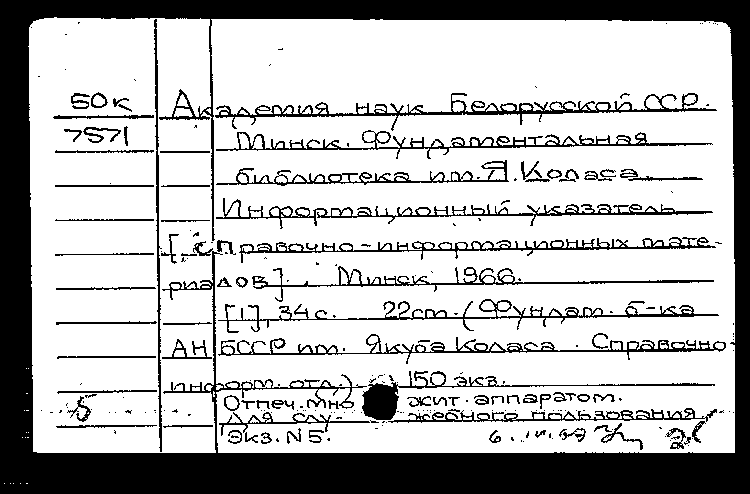 БОК Академия наук Белорусской ССР.
7571 Минск. Фундаментальная
библиотека им. Я. Коласа.
Информационный указатель
[справочно-информационных мате-
риалов]. Минск, 1966.
[1], 34 с. 22 cm. (Фундам. б-ка
АН БССР им. Якуба Коласа. Справочно-
информ. отд.) 150 экз.
5 Отпеч. мно жит. аппаратом.
Для слу- жебного пользования.
Экз. N 5.